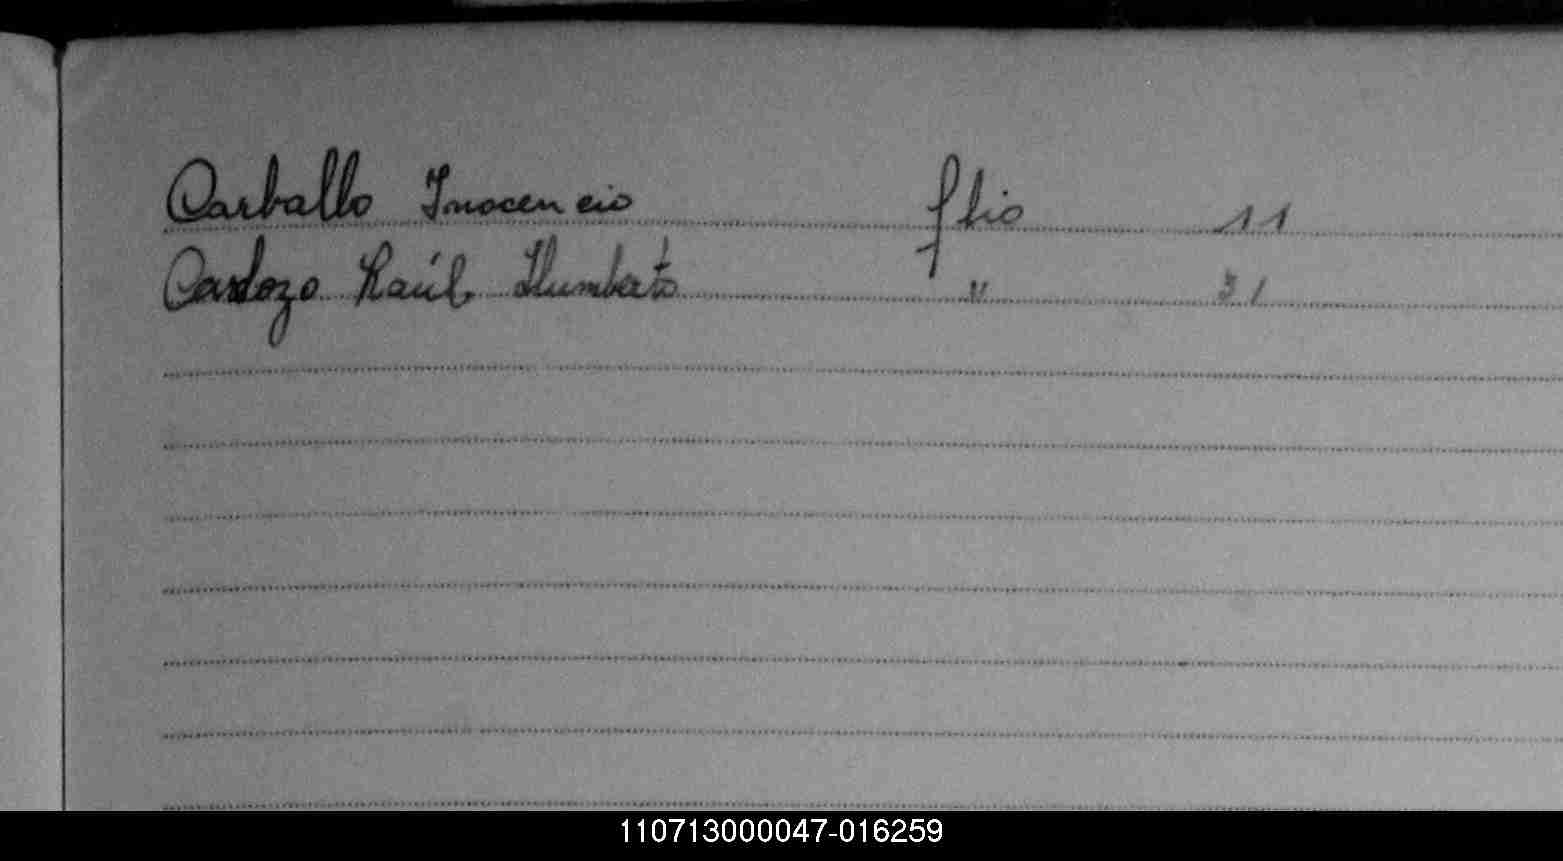 Carballo Inocencio flio 11
Cardozo Raúl Humberto " 31
110713000047-016259